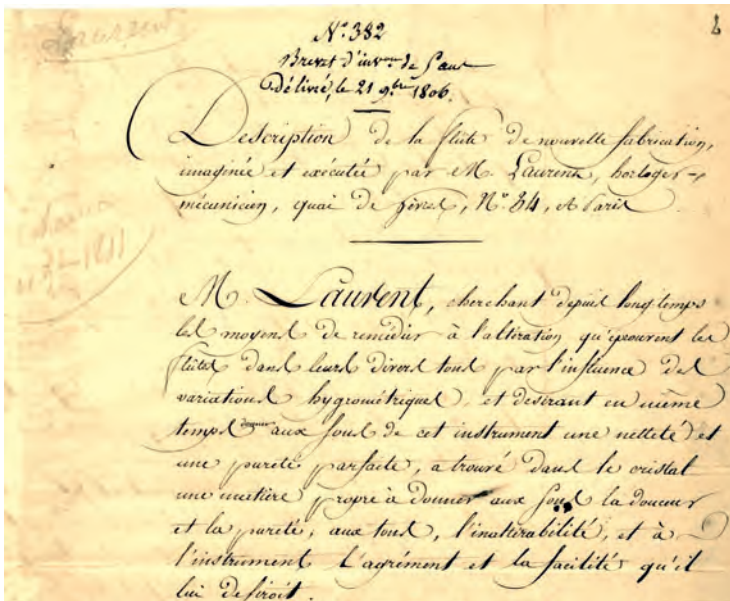 Laurent
2
N° 382
Brevet d'invon de 5 ans
Délivré, le 21 9bre 1806.
Description de la flûte de nouvelle fabrication,
imaginée et exécutée par M. Laurent, horloger-
mécanicien, quai de Gèvres, N° 34, à Paris
M. Laurent, cherchant depuis long temps
les moyens de remédier à l'altération qu'éprouvent les
flûtes dans leurs divers tons par l'influence des
variations hygrométriques, et desirant en même
temps donner aux sons de cet instrument une netteté et
une pureté parfaite, a trouvé dans le cristal
une matière propre à donner aux sons la douceur
et la pureté, aux tons, l'inaltérabilité, et à
l'instrument l'agrément et la facilité qu'il
lui desiroit.
1811